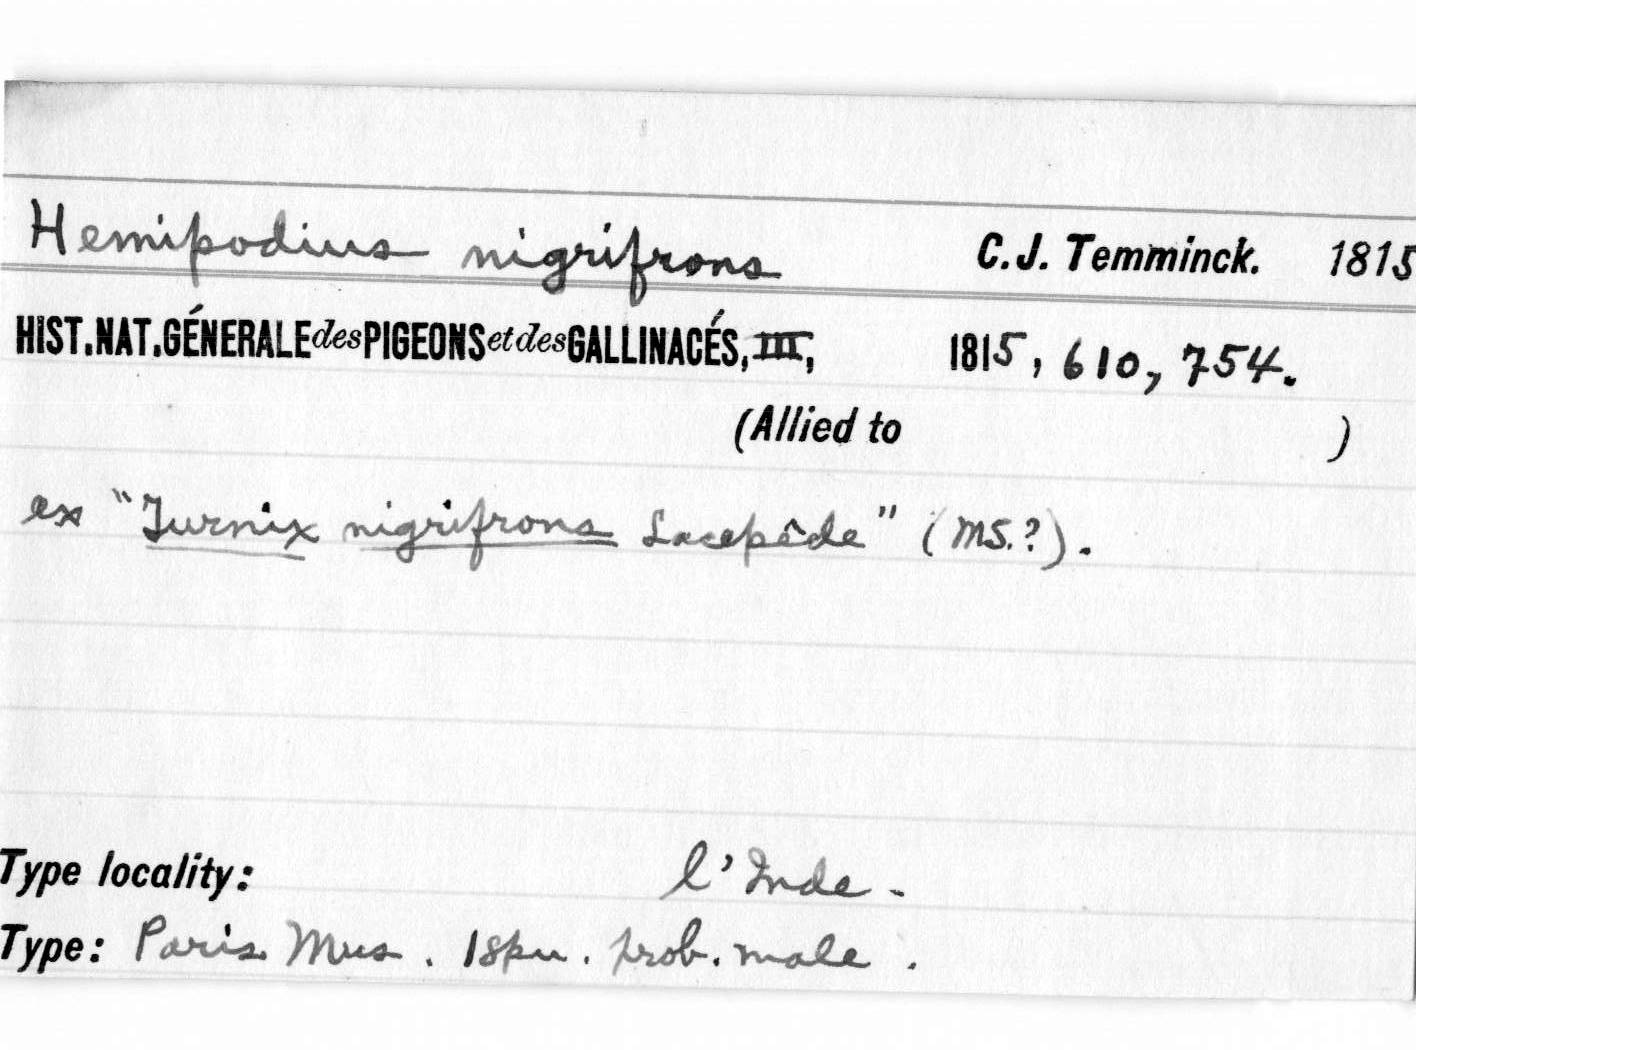 Hemipodius nigrifrons C.J. Temminck. 1815
HIST.NAT.GÉNERALE des PIGEONS et des GALLINACÉS, III, 1815, 610, 754.
(Allied to )
ex "Turnix nigrifrons Lacepêde" (MS.?).
Type locality: l'Inde.
Type: Paris Mus. 1 spn. prob. male.